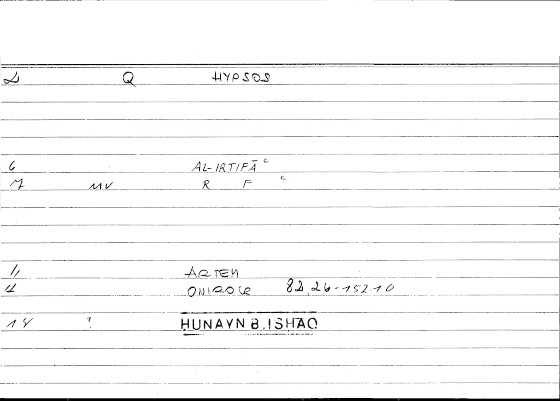 2 Q HYPSOS
6 AL-IRTIFĀ ͨ
7 MV R F ͨ
11 ARTEM
ONIROCR 82,26-152,10
14 ? HUNAYN B.ISHAQ